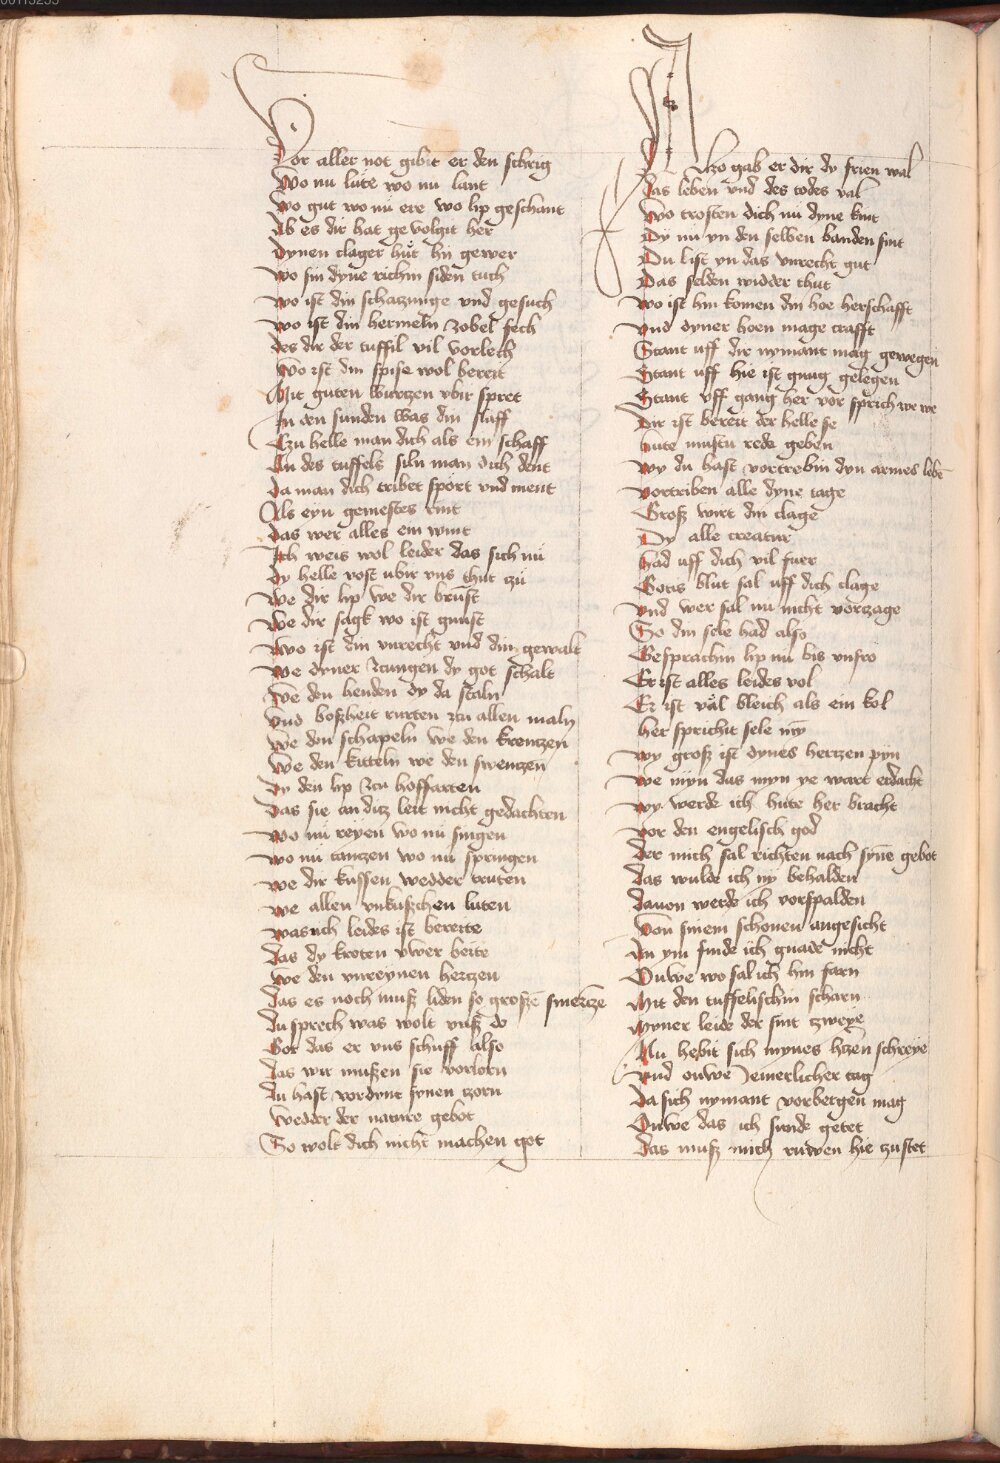 Vor aller not gibit er den schrig
Wo nu lute wo nu lant
Wo gut wo nu ere wo lip geschant
Ab es dir hat gevolgit her
Dynen clager hut hin gewer
Wo sin dyne richin siden tuch
Wo ist din schatzunge vnd gesuch
Wo ist din hermeln zobel fech
Des dir der tuffil vil vorlech
Wo ist din spise wol bereit
Mit guten wurtzen vbir spret
In den sunden was din slaff
Czu helle man dich als ein schaff
An des tuffels siln man dich dent
Da man dich tribet sport vnd ment
Als eyn gemestes rint
Das wer alles ein wint
Ich weis wol leider das sich nu
Dy helle rost ubir vns thut zu
We dir lip we dir brust
We dir sagk wo ist gunst
Wo ist din vnrecht vnd din gewalt
We dyner zcungen dy got schalt
We den henden dy da staln
Vnd boszheit rurten zcu allen maln
We den schapeln we den krentzen
We den kitteln we den swentzen
Dy den lip zcu hoffarten
Das sie an ditz leit nicht gedachten
Wo nu reyen wo nu singen
Wo nu tantzen wo nu springen
We dir kussen wedder truten
We allen vnkuschen luten
Was uch leides ist bereite
Das dy kroten uwer beite
We den vnreynen hertzen
Das es noch musz liden so grosze smertze
Du sprech was wolt vnsz do
Got das er vns schuff also
Das wir muszen sie vorlorn
Du hast vordynt synen zorn
Wedder der nature gebot
So wolt dich nicht machen got
Alzo gab er dir dy frien wal
Das leben vnd des todes val
Wo trosten dich nu dyne kint
Dy nu yn den selben banden sint
Du list yn das vnrecht gut
Das selden widder thut
Wo ist hin komen din hoe herschafft
Vnd dyner hoen mage crafft
Stant uff dir nymant mag gewegen
Stant uff hie ist gnug gelegen
Stant uff gang her vor sprich we we
Dir ist bereit der helle se
Hute mustu rede geben
Wy du hast vortrebin dyn armes lebē
Vortriben alle dyne tage
Grosz wirt din clage
Dy alle creatur
Had uff dich vil fuer
Gotis blut sal uff dich clage
Vnd wer sal nu nicht vorzage
So din sele had also
Gesprachin lip nu bis vnfro
Er ist alles leides vol
Er ist val bleich als ein kol
Her sprichit sele my
Wy grosz ist dynes hertzen pyn
We myn das myn ye wart erdacht
Wy werde ich hute her bracht
Vor den engelisch god
Der mich sal richten nach syne gebot
Das wulde ich ny behalden
Dauon werde ich vorspalden
Von sinem schonen angesicht
An ym finde ich gnade nicht
Ouwe wo sal ich hin farn
Mit den tuffelischin scharn
Myner leide der sint zweye
Nu hebit sich mynes hertzen schreye
Vnd ouwe Jemerlicher tag
Da sich nymant vorbergen mag
Ouwe das ich sunde getet
Das musz mich ruwen hie zustet